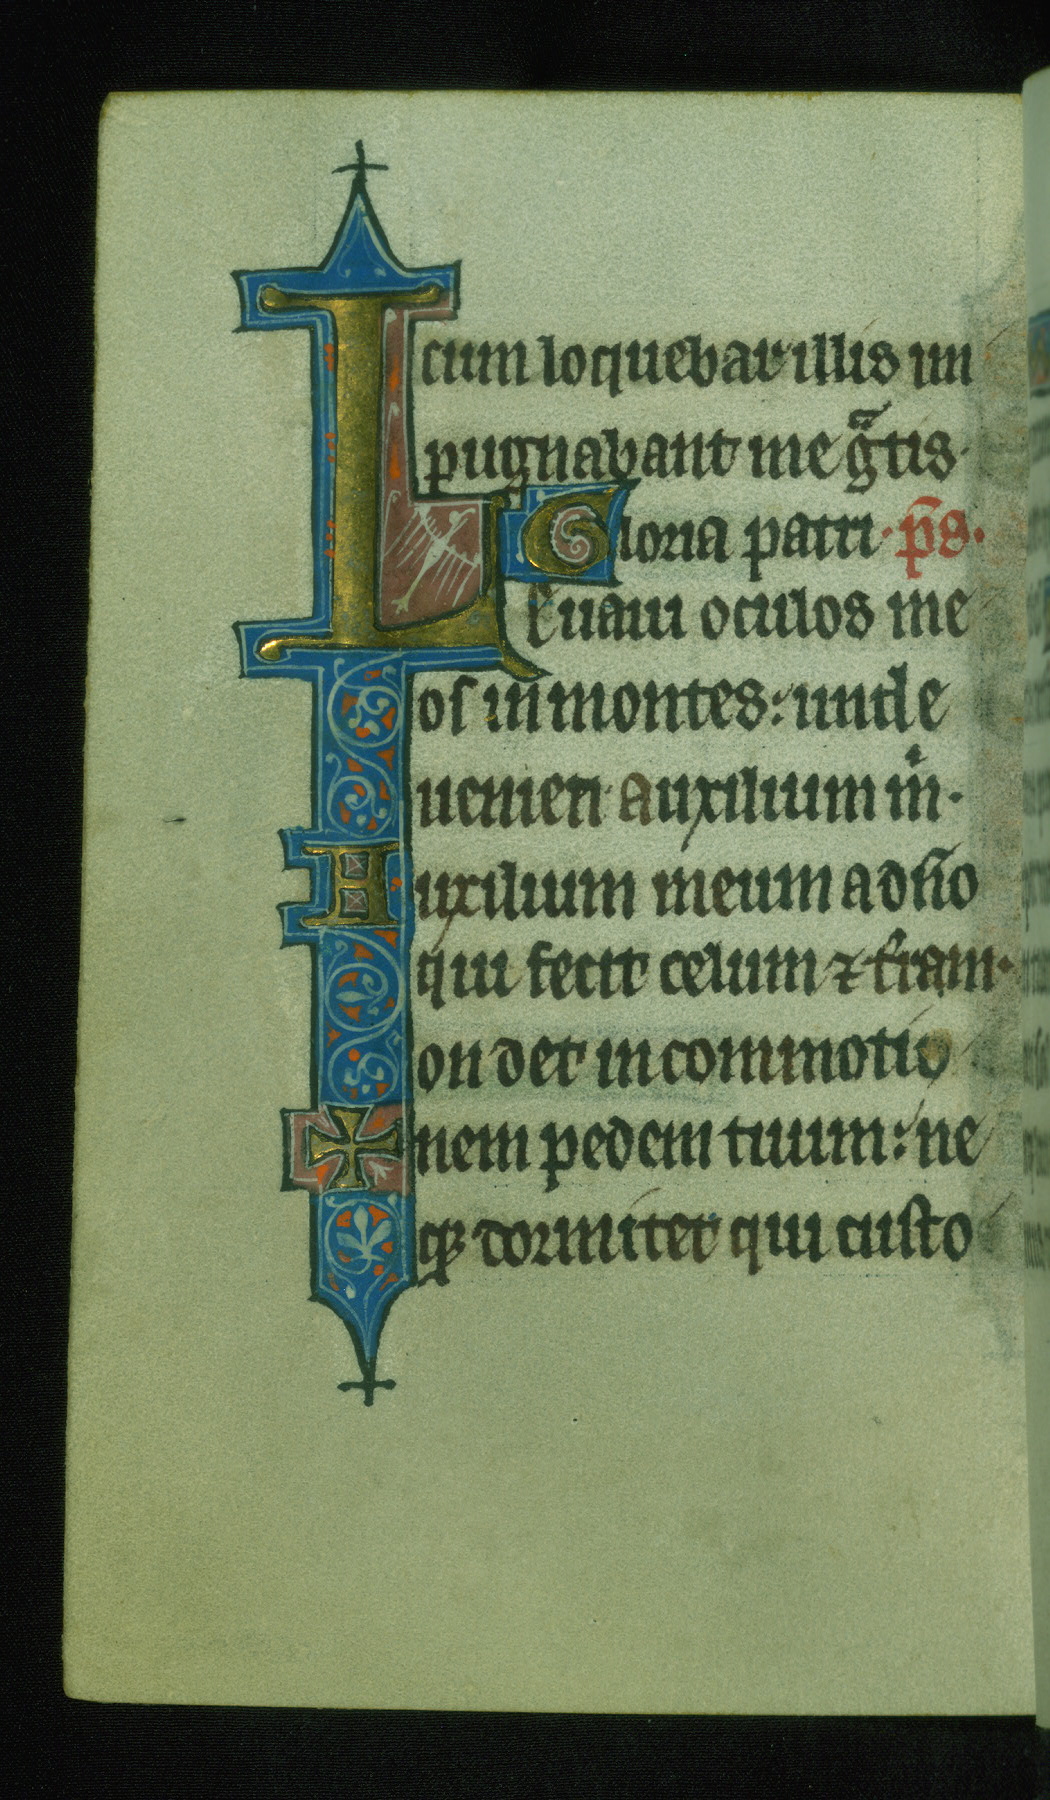 cum loquebar illis im
pugnabant me g̃tis·
Gloria patri· p̄s·
Leuaui oculos me
os in montes: unde
ueniet auxilium m̊·
Auxilium meum a dño
qui fecit celum ⁊ t̃ram·
on det in commotio
nem pedem tuum: ne
qꝫ dormitet qui custo